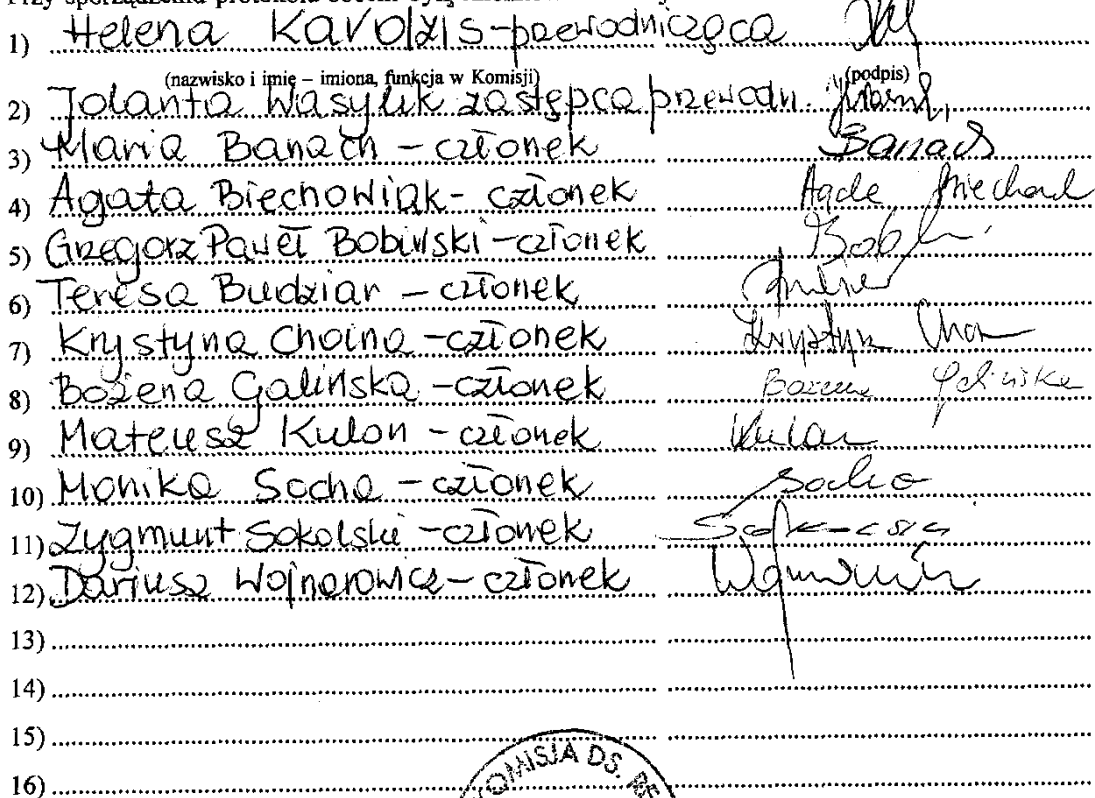 1) Helena Karolzis - przewodnicząca
(nazwisko i imię – imiona, funkcja w Komisji) (podpis)
2) Jolanta Wasylik zastępca przewodn.
3) Maria Banach – członek Banach
4) Agata Biechowiak - członek
5) Grzegorz Paweł Bobiński - członek
6) Teresa Budziar – członek
7) Krystyna Choina - członek Krystyna
8) Bożena Galińska - członek Bożena Galińska
9) Mateusz Kulon - członek Kulon
10) Monika Socha - członek Socha
11) Zygmunt Sokolski - członek
12) Dariusz Wojnarowicz - członek
13)
14)
15)
16)
KOMISJA DS. RE